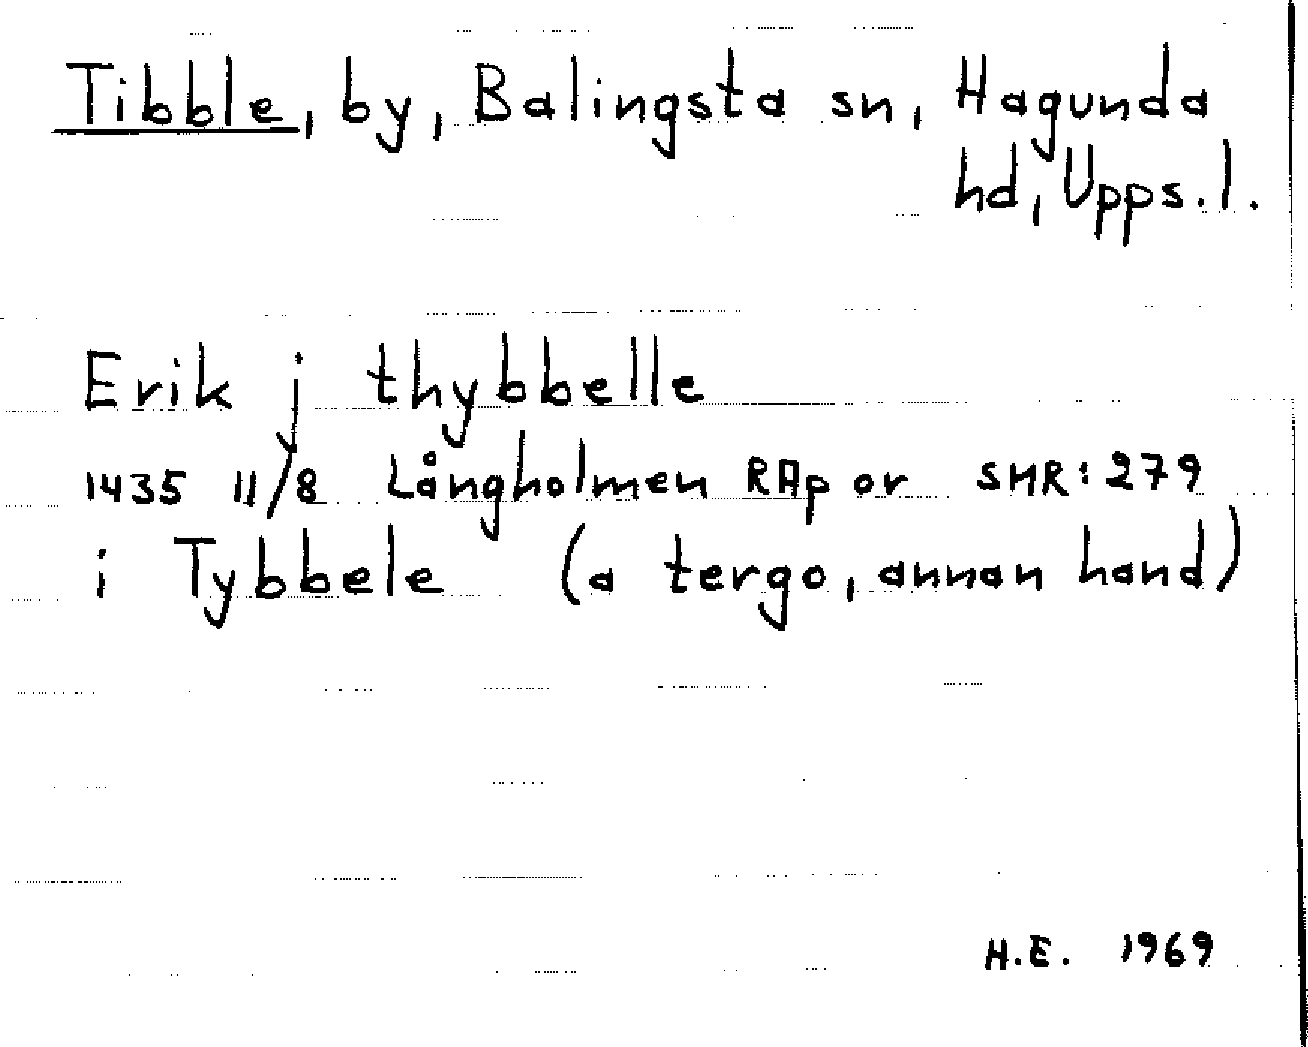 Tibble, by, Balingsta sn, Hagunda
hd, Upps.l.
Erik j thybbelle
1435 11/8 Långholmen RAp or SMR: 279
i Tybbele (a tergo, annan hand)
H.E. 1969